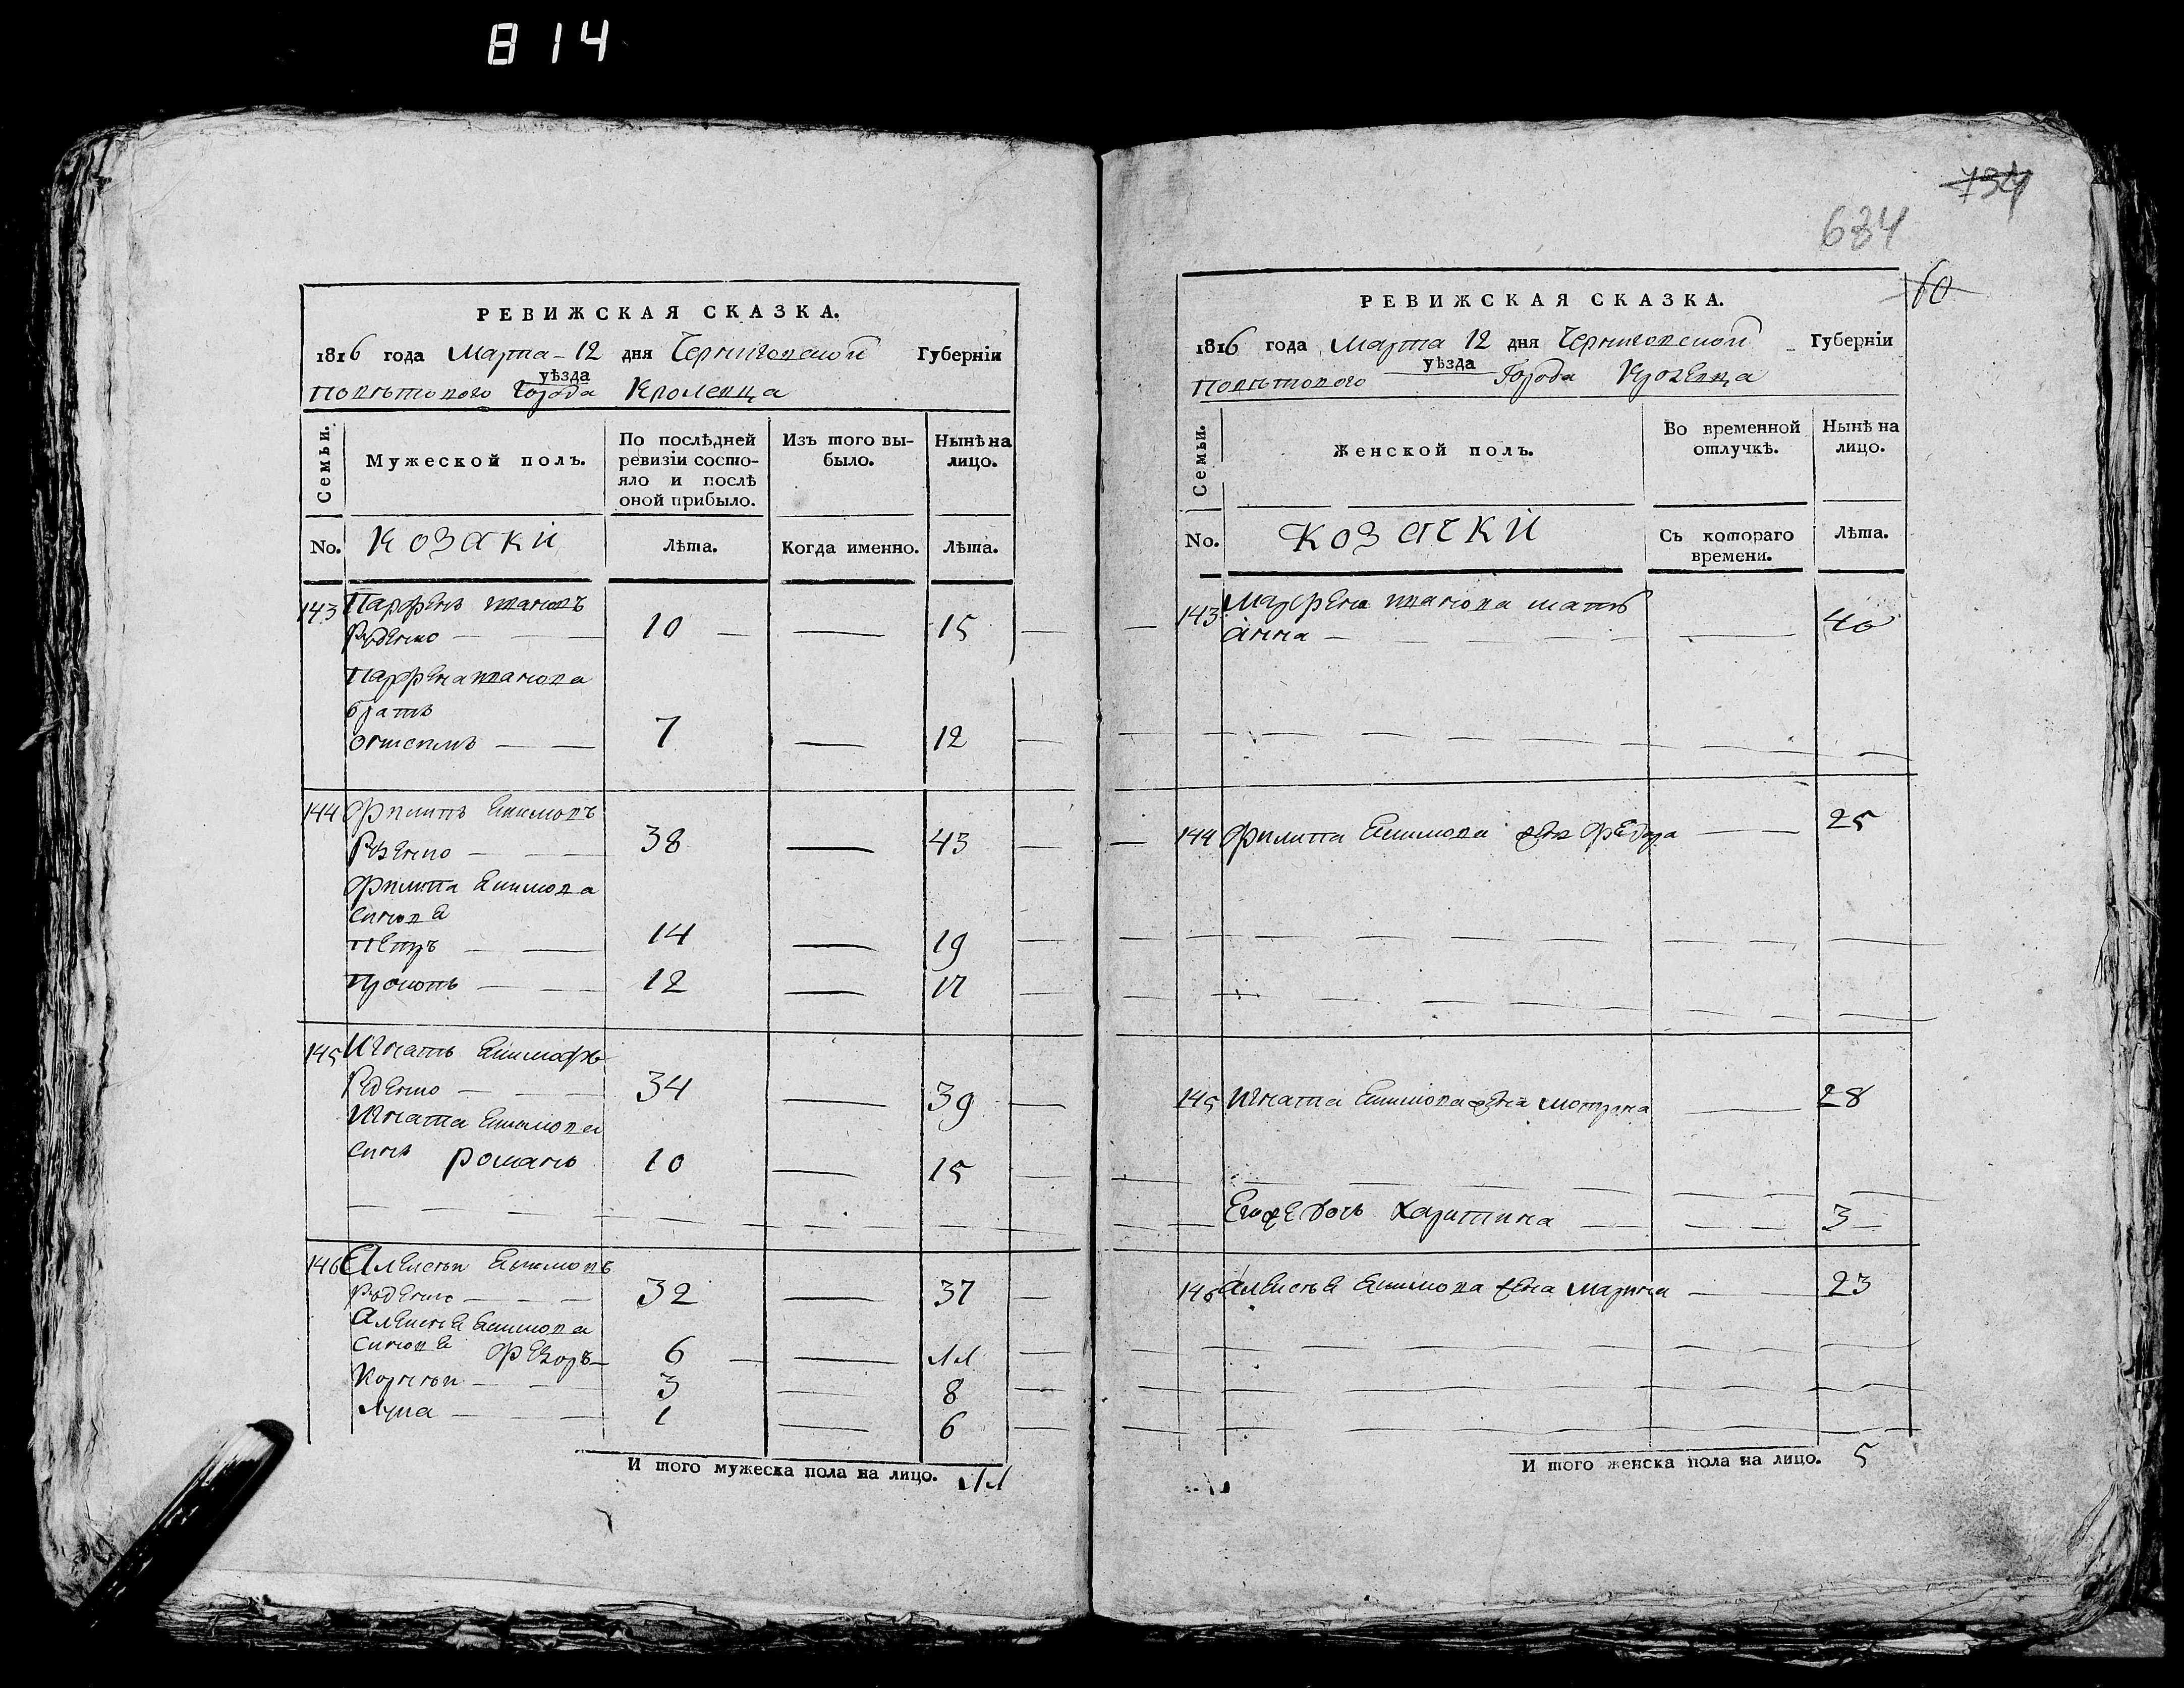 814
РЕВИЖСКАЯ СКАЗКА.
1816 года Марта 12 дня Черниговской Губерніи
уѣзда
Повѣтового Города Кролевца
Семьи.
Мужеской полъ.
По послѣдней ревизіи состояло и послѣ оной прибыло.
Изъ того выбыло.
Нынѣ на лицо.
No. Козаки
Лѣта.
Когда именно.
Лѣта.
143 Парфенъ
Руденко 10 15
Парфена
братъ
7 12
144 Филипъ Екимовъ
Руденко 38 43
Филипа Екимова
синове
Петръ 14 19
Прокопъ 12 17
145 Игнатъ Екимовъ
Руденко 34 39
Игната Екимова
синъ Романъ 10 15
146 Алексѣй Екимовъ
Руденко 32 37
Алексѣе Екимова
синове Федоръ 6 11
Корнѣй 3 8
Лука 1 6
И того мужеска пола на лицо. 11
734
684
60
РЕВИЖСКАЯ СКАЗКА.
1816 года Марта 12 дня Черниговской Губерніи
уѣзда
Повѣтового Города Кролевца
Семьи.
Женской полъ.
Во временной отлучкѣ.
Нынѣ на лицо.
No. Козачки
Съ котораго времени.
Лѣта.
143 мать
Анна 40
144 Филипа Екимова жена 25
145 Игната Екимова жена Мотрона 28
Егоже дочь Харитина 3
146 Алексѣе Екимова жена Марина 23
И того женска пола на лицо. 5